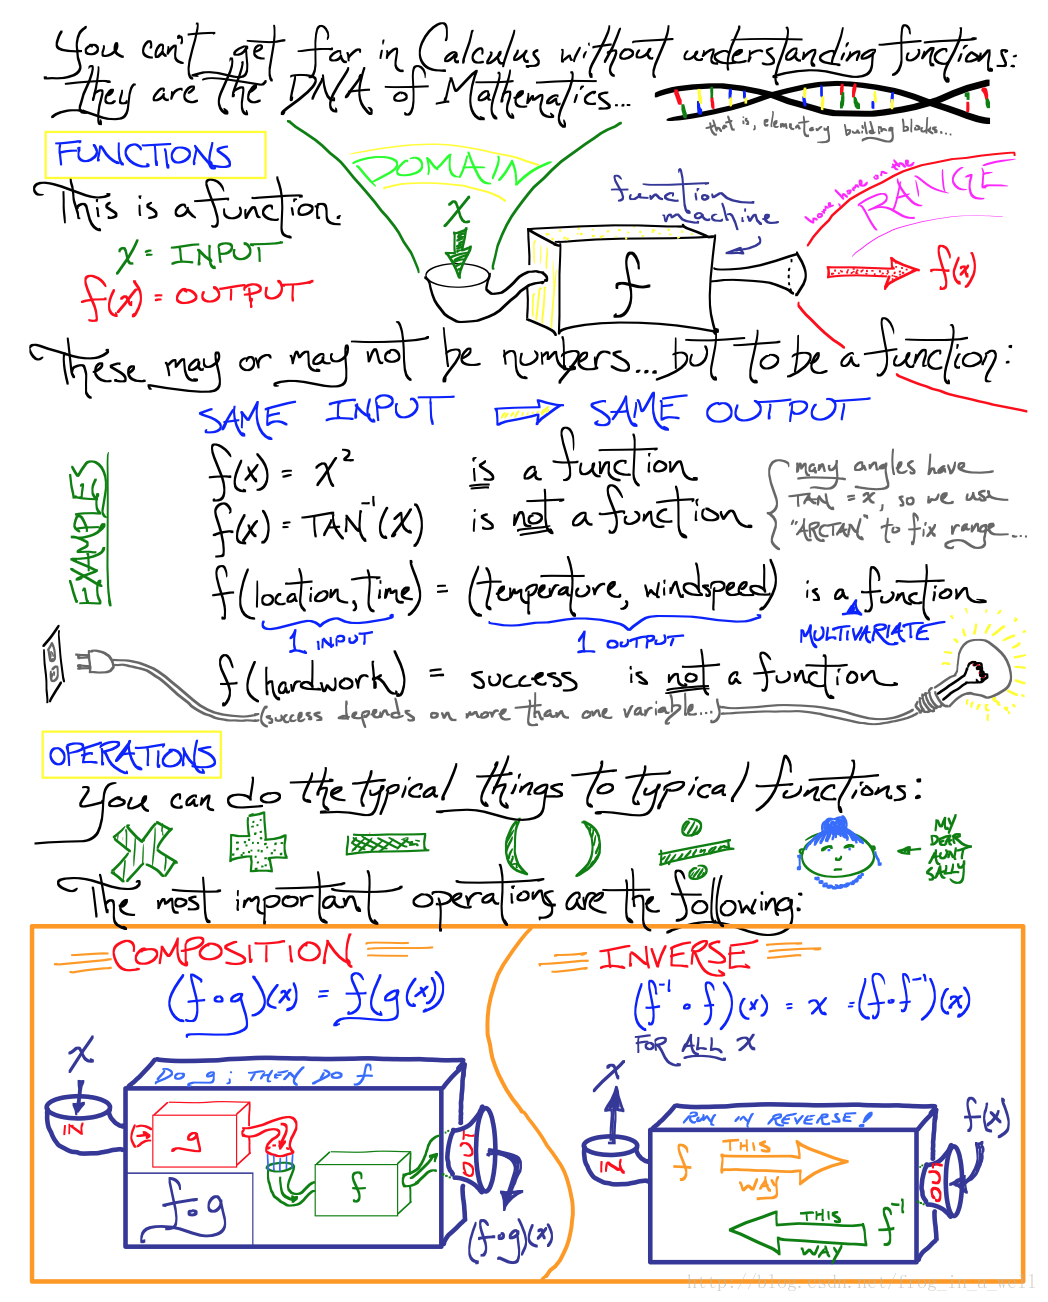 You can't get far in Calculus without understanding functions:
They are the DNA of Mathematics...
that is, elementary building blocks...
FUNCTIONS
DOMAIN
home, home on the
RANGE
This is a function.
x
function machine
x = INPUT
f(x) = OUTPUT
f
f(x)
These may or may not be numbers... but to be a function:
SAME INPUT ⇒ SAME OUTPUT
EXAMPLES
f(x) = x² is a function
f(x) = TAN⁻¹(x) is not a function
many angles have
TAN = x, so we use
"ARCTAN" to fix range...
f(location, time) = (temperature, windspeed) is a function
1 INPUT
1 OUTPUT
MULTIVARIATE
f(hardwork) = success is not a function
(success depends on more than one variable...)
OPERATIONS
You can do the typical things to typical functions:
MY
DEAR
AUNT
SALLY
The most important operations are the following:
COMPOSITION
(f∘g)(x) = f(g(x))
x
DO g; THEN DO f
IN
g
f
OUT
f∘g
(f∘g)(x)
INVERSE
(f⁻¹∘f)(x) = x = (f∘f⁻¹)(x)
FOR ALL x
x
RUN IN REVERSE!
f(x)
IN
f
THIS
WAY
OUT
THIS
WAY
f⁻¹
http://blog.csdn.net/frog_in_a_well